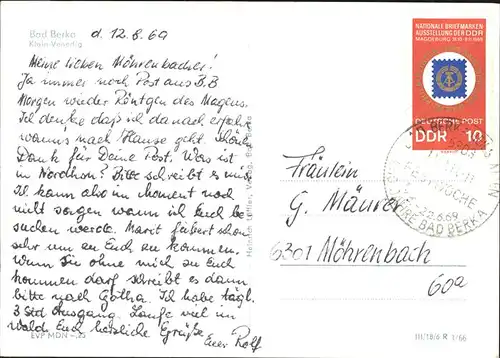 Bad Berka
Klein-Venedig
d. 12.8.69
Meine lieben Möhrenbacher!
Ja immer noch Post aus B.B
Morgen wieder Röntgen des Magens.
Ich denke daß ich danach erfahre
wann's nach Hause geht. Schönen
Dank für Deine Post. Was ist
in Nordhsn? Bitte schreibt es mir.
Ich kann also im Moment noch
nicht sagen wann ich Euch be
suchen werde. Marit fiebert schon
sehr um zu Euch zu kommen.
Wenn Sie ohne mich zu Euch
kommen darf schreibt es dann
bitte nach Gotha. Ich habe tägl.
3 Std Ausgang. Laufe viel im
Wald. Euch herzliche Grüße
Euer Rolf
EVP MDN -,25
NATIONALE BRIEFMARKEN
AUSSTELLUNG DER DDR
MAGDEBURG
DEUTSCHE POST
DDR 10
5303
FESTWOCHE
22.6.69
JAHRE BAD BERKA
Fräulein
G. Mäurer
6301 Möhrenbach
60a
III/18/6 R 1/66